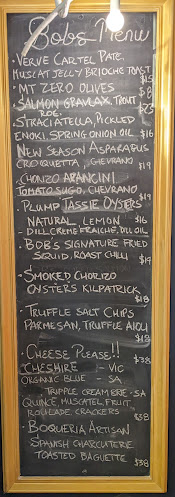 Bob's Menu
• Verve Cartel Pate.
Muscat Jelly Brioche Toast
$15
• Mt Zero Olives $8
• Salmon Gravlax, Trout Roe. $25
• Straciatella, Pickled
Enoki, Spring Onion Oil $16
• New Season Asparagus
Croquetta, Chevrano $19
• Chorizo Arancini
Tomato Sugo, Chevrano $19
• Plump Tassie Oysters
Natural, Lemon $16
- Dill Creme Fraiche, Dill Oil
• Bob's Signature Fried
Squid, Roast Chilli $19
• Smoked Chorizo
Oysters Kilpatrick
$18
• Truffle Salt Chips
Parmesan, Truffle Aioli
• Cheese Please!! $38
Cheshire - Vic
Organic Blue - SA
Tripple Creme Brie - SA
Quince, Muscatel, Fruit
Roulade, Crackers $38
• Boqueria Artisan
Spanish Charcuterie
Toasted Baguette $38